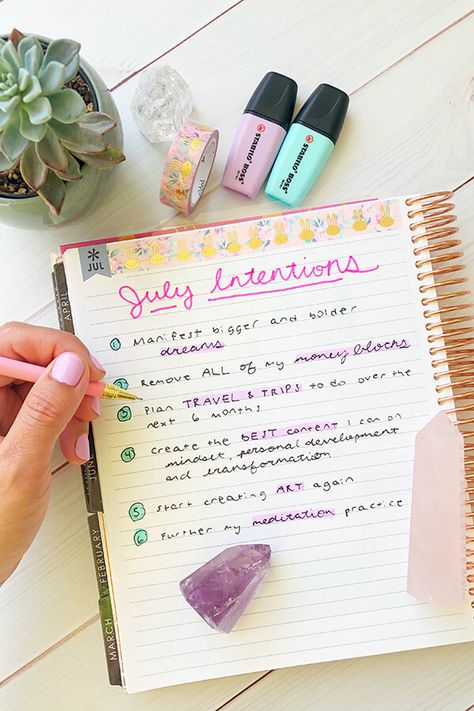 STABILO BOSS
STABILO BOSS
JUL
APRIL
July Intentions
1 Manifest bigger and bolder
dreams
2 Remove ALL of my money blocks
3 Plan TRAVEL & TRIPS to do over the
next 6 months
4 Create the BEST content I can on
mindset, personal development
and transformation
5 Start creating ART again
6 Further my meditation practice
JUNE
FEBRUARY
MARCH